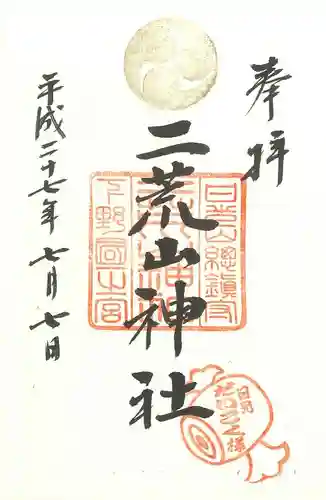 奉拝
日光山総鎮守
二荒山神社
下野國一之宮
平成二十七年七月七日
日光
だいこく様